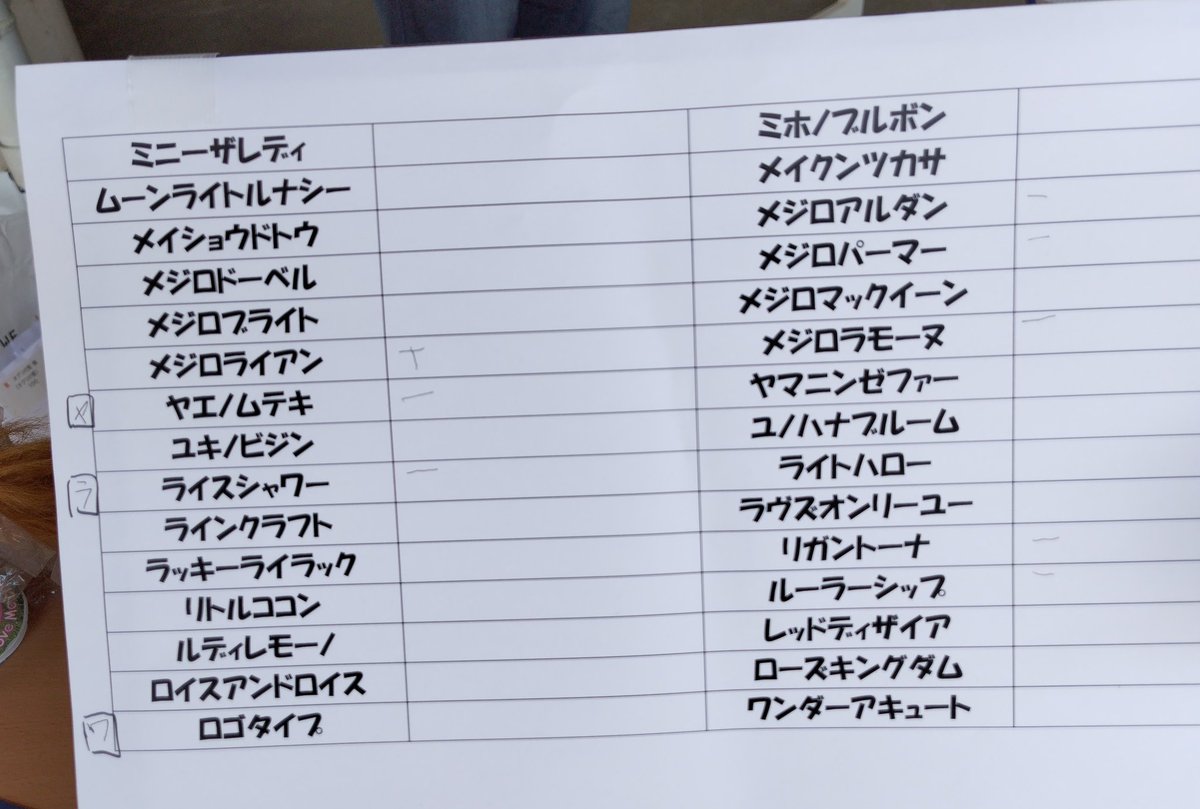 ミニーザレディ ミホノブルボン
ムーンライトルナシー メイクンツカサ
メイショウドトウ メジロアルダン 一
メジロドーベル メジロパーマー 一
メジロブライト メジロマックイーン
メジロライアン 丅 メジロラモーヌ 一
ヤエノムテキ 一 ヤマニンゼファー
ユキノビジン ユノハナブルーム
ラ ライスシャワー 一 ライトハロー
ラインクラフト ラヴズオンリーユー
ラッキーライラック リガントーナ 一
リトルココン ルーラーシップ 一
ルディレモーノ レッドディザイア
ロイスアンドロイス ローズキングダム
ワ ロゴタイプ ワンダーアキュート